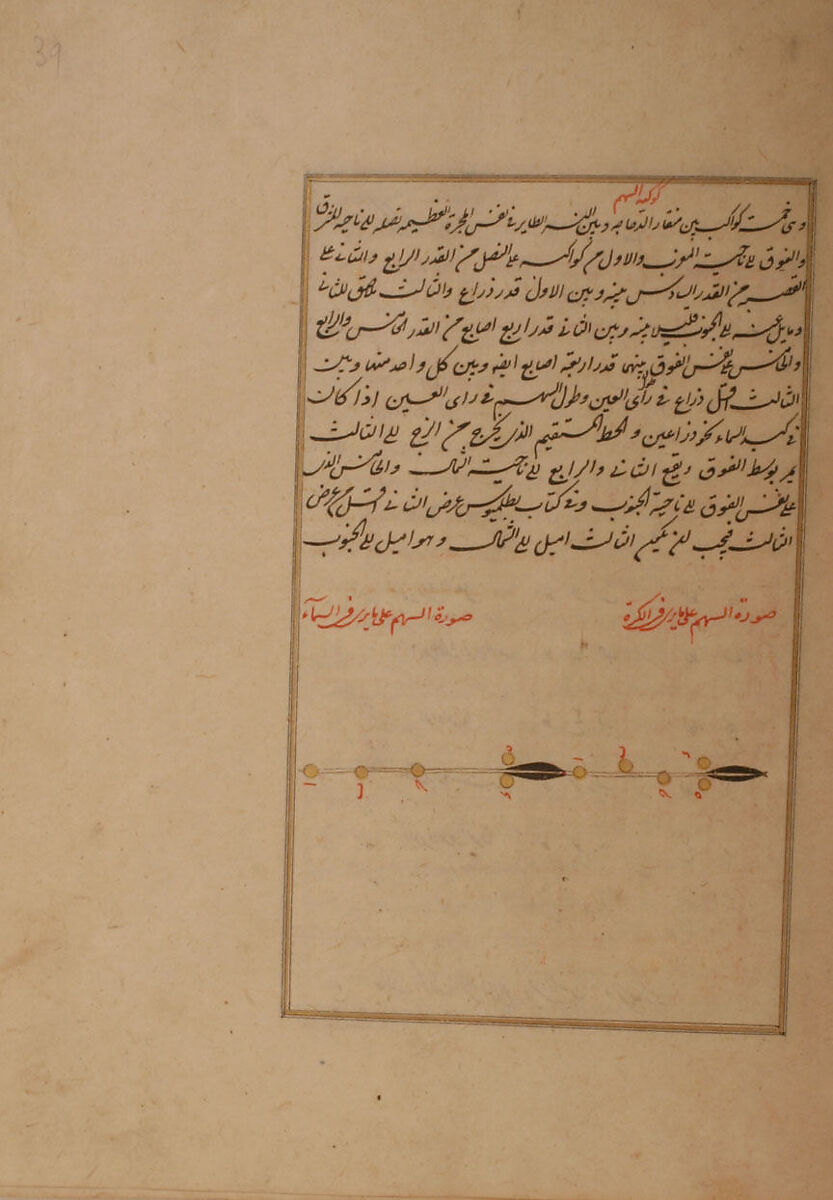 39
كوكبة السهم
وهى خمسة كواكب بين منقار الدجاجه وبين النسر الطاير فى نفس المجرة العظيمه نصله الى ناحية المشرق
والفوق الى ناحية المغرب والاول من كواكبه على النصل من القدر الرابع والثانى على
القصبه من القدر السادس بينه وبين الاول قدر ذراع والثالث يلحق للثانى
ومايل عنه الى الجنوب قليلا بينه وبين الثانى قدر اربع اصابع من القدر الخامس والرابع
والخامس على نفس الفوق بينهما قدر اربعة اصابع ايضه وبين كل واحد منهما وبين
الثالث اقل ذراع فى راى العين وطول السهم فى راى العين اذا كان
فى كبد السماء نحو ذراعين والخط المستقيم الذى يخرج من الزج الى الثالث
يمر بوسط الفوق ويقع الثانى والرابع الى ناحية الشمال والخامس الذى
على نفس الفوق الى ناحية الجنوب وفى كتاب بطلميوس عرض الثانى اقل من عرض
الثالث فيجب ان يكون الثالث اميل الى الشمال وهو اميل الى الجنوب
صورة السهم على ما يرى فى الكرة
صورة السهم على ما يرى فى السماء